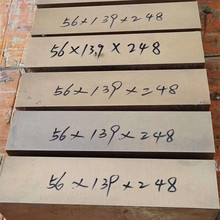 56×139×248
56×139×248
56×139×248
56×139×248
56×139×248